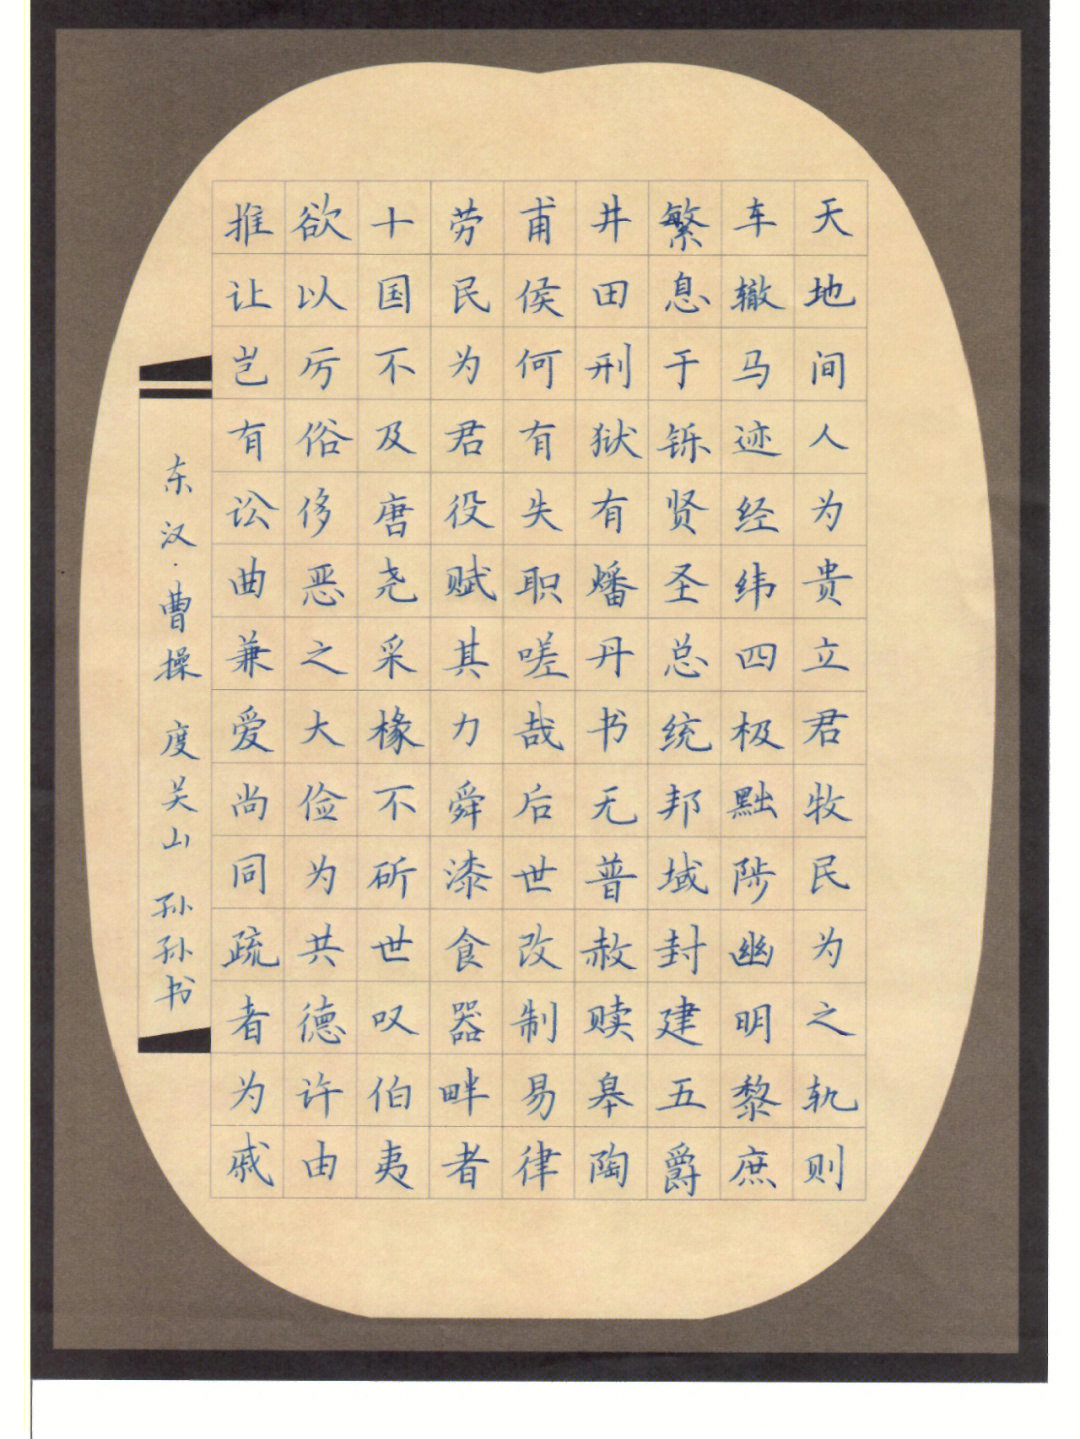 天地间人为贵立君牧民为之轨则
车辙马迹经纬四极黜陟幽明黎庶
繁息于铄贤圣总统邦域封建五爵
井田刑狱有燔丹书无普赦赎皋陶
甫侯何有失职嗟哉后世改制易律
劳民为君役赋其力舜漆食器畔者
十国不及唐尧采椽不斫世叹伯夷
欲以厉俗侈恶之大俭为共德许由
推让岂有讼曲兼爱尚同疏者为戚
东汉·曹操 度关山 孙孙书